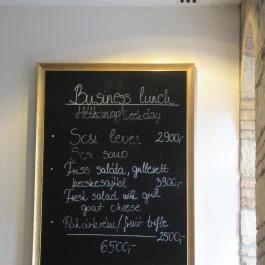 Business lunch
Hétköznap/Weekday
Sesi leves 2900,-
Sesi soup
Friss saláta, grillezett
kecskesajttal 3900,-
Fresh salad with grill
goat cheese
Pohárkrém/fruit trifle
2500,-
6500,-